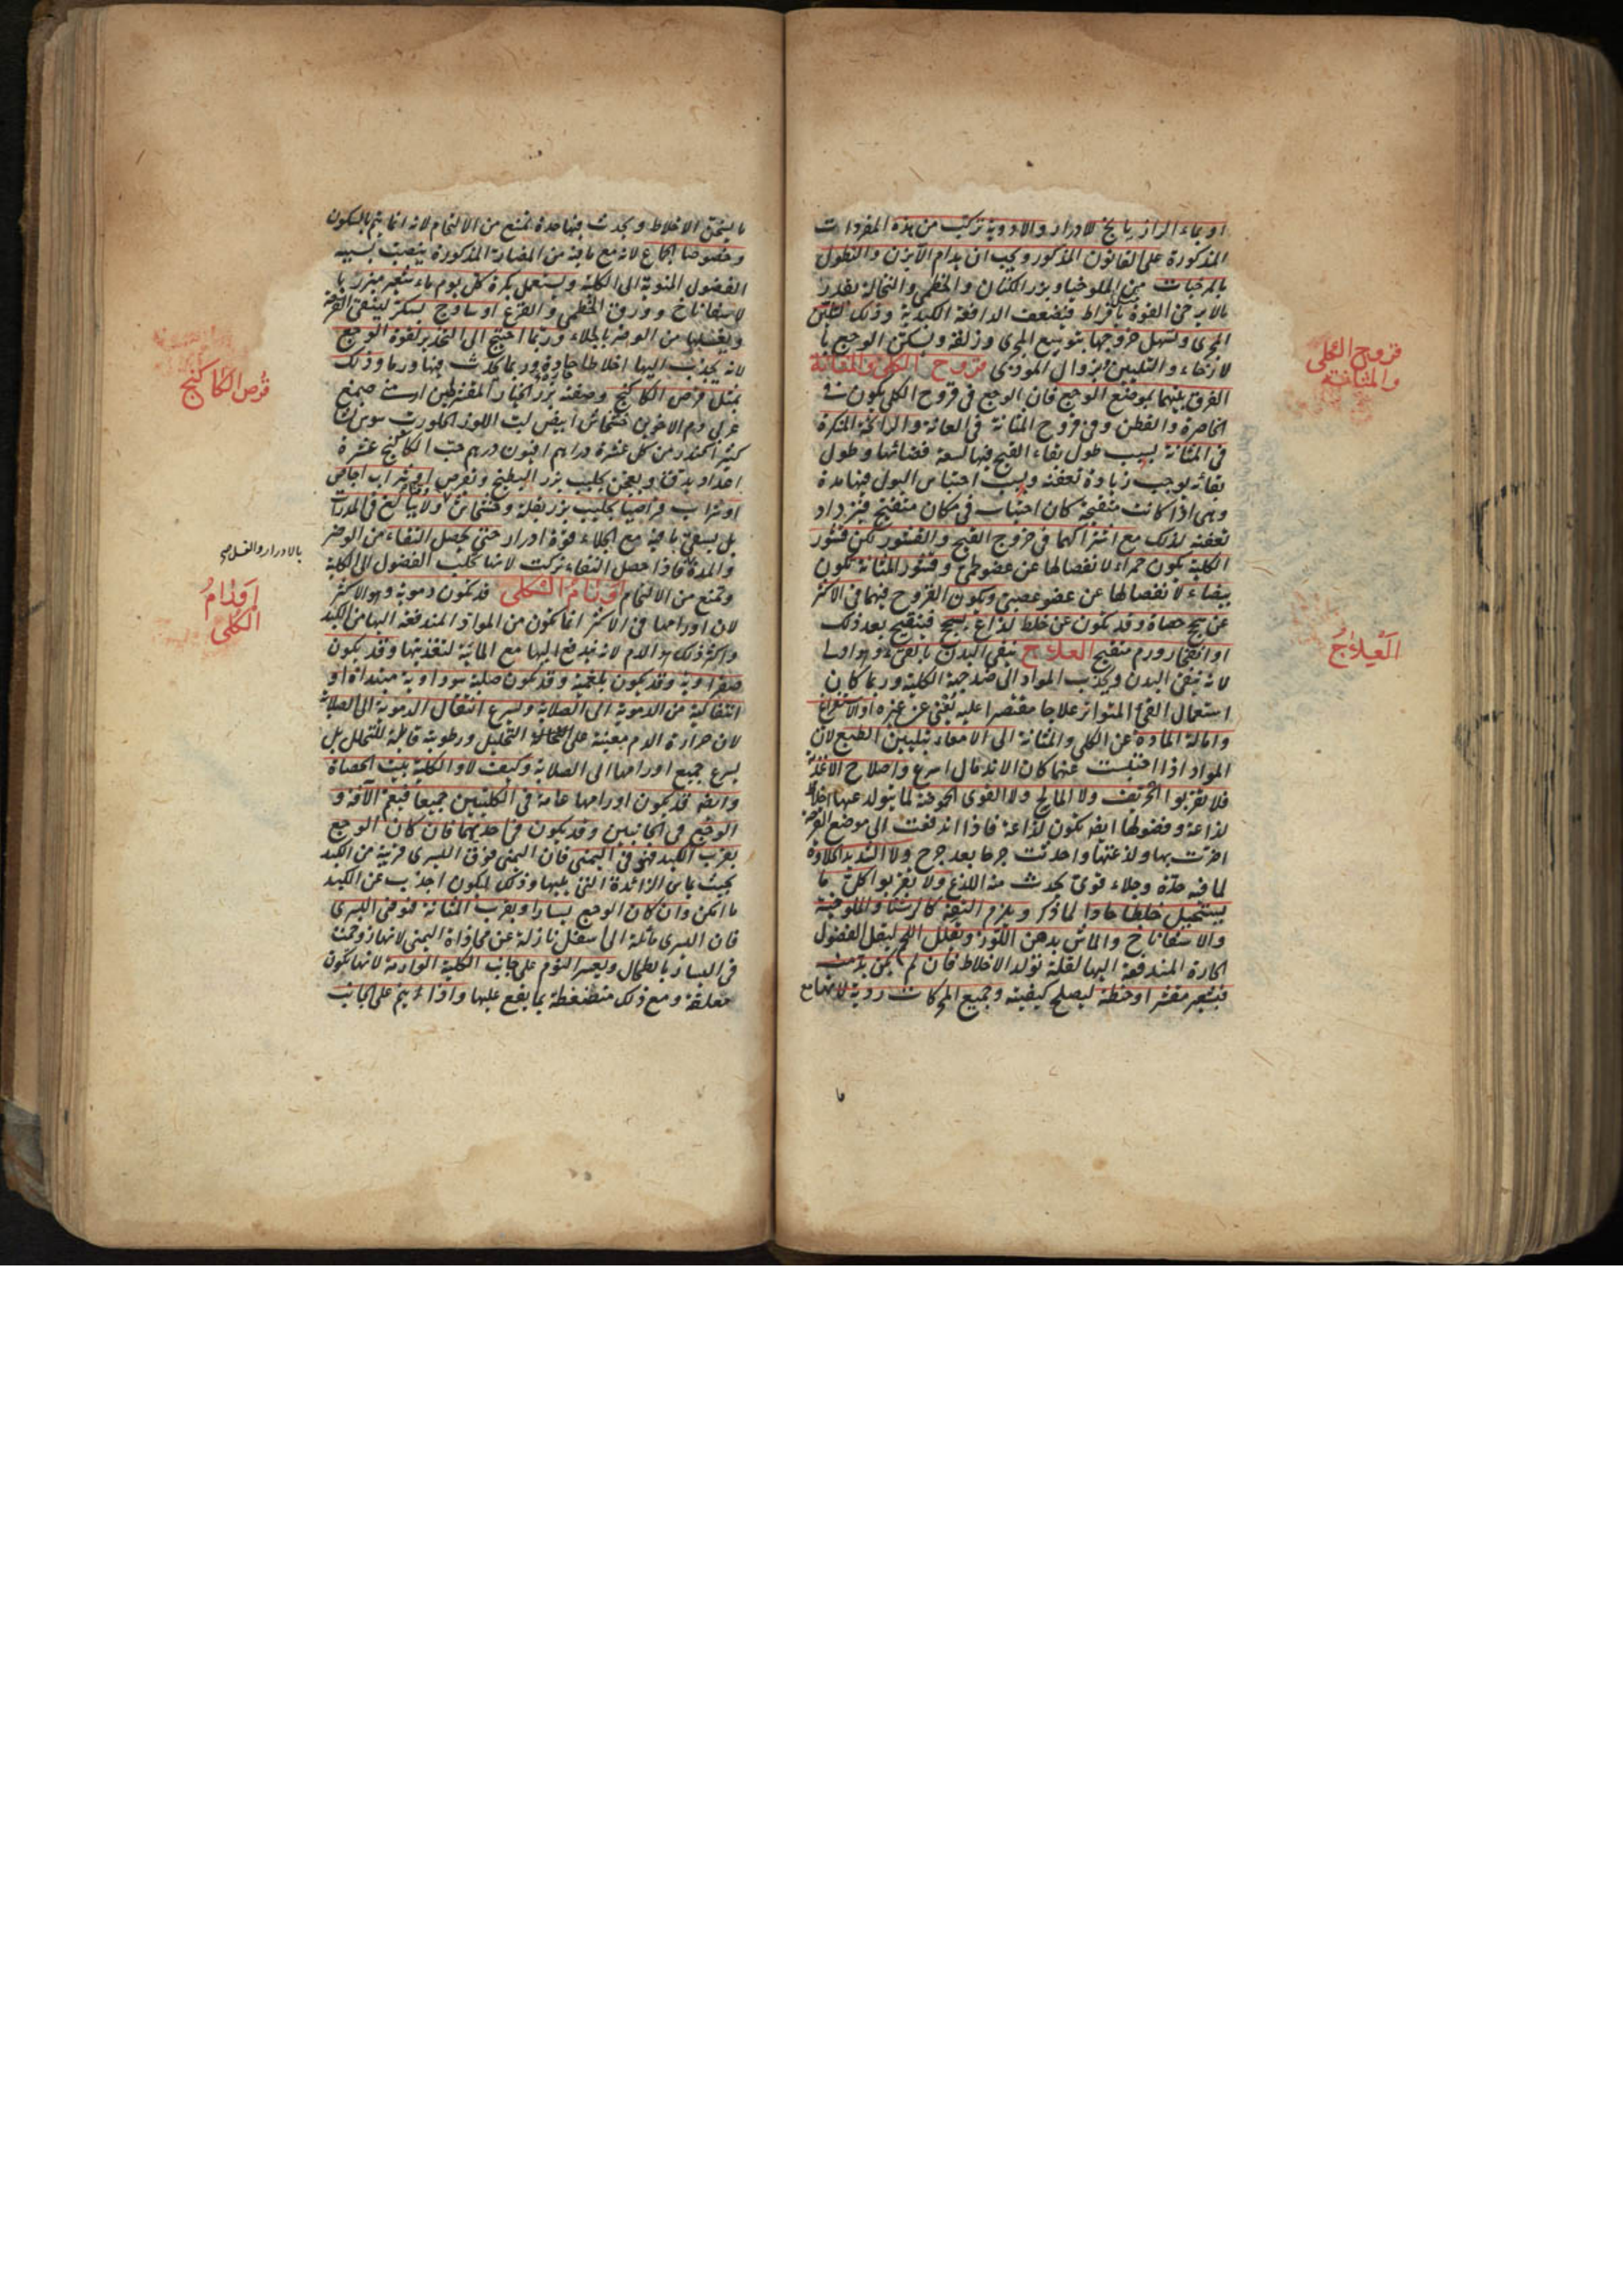 او بماء الرازيانج لادرار والادوية تركب من هذه المفردات
المذكورة على القانون المذكور ويجب ان يدام الآبزن والنطول
بالمرخيات من الملوخيا وبزر الكتان والخطمى والنخالة بقدر
مالا يرخى القوة بافراط فيضعف الدافعة الكلية وذلك لتلين
المجرى وتسهل خروجها بتوسيع المجرى وزلقه ويسكن الوجع با
لارخاء والتليين بزوال الموذى قروح الكلى والمثانة
الفرق بينهما بموضع الوجع فان الوجع فى قروح الكلى يكون فى
الخاصرة والقطن وفى قروح المثانة فى العانة والرائحة المنكرة
فى المثانة بسبب طول بقاء القيح فيها لسعة فضائها وطول
بقائه يوجب زيادة تعفنه وبسبب احتباس البول فيها مدة
وهى اذا كانت متقيحة كان احتباسه فى مكان متقيح فيزداد
تعفنه لذلك مع اشتراكهما فى خروج القيح والقشور لكن قشور
الكلية يكون حمراء لانفصالها عن عضو لحمى وقشور المثانة يكون
بيضاء لانفصالها عن عضو عصبى ويكون القروح فيهما فى الاكثر
عن سحج حصاة وقد يكون عن خلط لذاع يسحج فيتقيح بعد ذلك
او انفجار ورم متقيح العلاج ينقى البدن بالقىء وهو اولى
لانه ينقى البدن ويجذب المواد الى ضد جهة الكلية وربما كان
استعمال القىء المتواتر علاجا مقتصرا عليه يغنى عن غيره او الاستفراغ
وامالة المادة عن الكلى والمثانة الى الامعاء بتليين الطبع لان
المواد اذا احتبست عنها كان الاندمال اسرع واصلاح الاغذية
فلا يقربوا الحريف ولا المالح ولا القوى الحموضة لما يتولد عنها اخلاط
لذاعة وفضولها ايضا يكون لذاعة فاذا اندفعت الى موضع القرحة
اضرت بها ولذعتها واحدثت جرحا بعد جرح ولا الشديد الحلاوة
لما فيه حدة وجلاء قوى يحدث منه اللذع ولا يقربوا كل ما
يستحيل خلطا حادا لما ذكر ويلزم التفه كالرشتا والملوخية
والاسفاناخ والماش بدهن اللوز وتقليل اللحم ليقل الفضول
الحارة المندفعة اليها لقلة تولد الاخلاط فان لم يكن بد من
فبشعير مقشر او حنطة ليصلح كيفيته وجميع الحركات ردية لانها مع
ما
قروح الكلى
والمثانة
العلاج
ما يسخن الاخلاط ويحدث فيها حدة تمنع من الالتحام لانه انما يتم بالسكون
وخصوصا الجماع لانه مع ما فيه من المضار المذكورة ينصب بسببه
الفضول المنوية الى الكلية ويستعمل بكرة كل يوم ماء شعير مبزر با
لاسفاناخ وورق الخطمى والقرع او ساذج بسكر لينقى القرحة
ويغسلها من الوضر بالجلاء وربما احتيج الى التخدير لقوة الوجع
لانه يجذب اليها اخلاطا حادة وربما يحدث فيها ورما وذلك
بمثل قرص الكاكنج وصفته بزر الخيار المقشر طين ارمنى صمغ
عربى دم الاخوين خشخاش ابيض لب اللوز الحلو رب سوس
كثيرا كندر من كل عشرة دراهم افيون درهم حب الكاكنج عشرة
اعداد يدق ويعجن بحليب بزر البطيخ ويقرص او شراب اجاص
او شراب قراصيا بحليب بزر بقلة وخشخاش ولا يبالغ فى المدرات
بل يسقى ما فيه مع الجلاء قوة ادرار حتى يحصل النقاء من الوضر
والمدة فاذا حصل النقاء تركت لانها تجلب الفضول الى الكلية
وتمنع من الالتحام اورام الكلى قد يكون دموية وهو الاكثر
لان اورامها فى الاكثر انما يكون من المواد المندفعة اليها من الكبد
واكثر ذلك هو الدم لانه يندفع اليها مع المائية لتغذيتها وقد يكون
صفراوية وقد يكون بلغمية وقد يكون صلبة سوداوية مبتدأة او
انتقالية من الدموية الى الصلابة ويسرع انتقال الدموية الى الصلابة
لان حرارة الدم معينة على التحليل ورطوبته قابلة للتحلل بل
يسرع جميع اورامها الى الصلابة وكيف لا والكلية بيت الحصاة
وايضا قد يكون اورامها عامة فى الكليتين جميعا فيعم الآفة و
الوجع فى الجانبين وقد يكون فى احديهما فان كان الوجع
بقرب الكبد فهو فى اليمنى فان اليمنى فوق اليسرى قريبة من الكبد
بحيث يماس الزائدة التى يليها وذلك ليكون اجذب عن الكبد
ما امكن وان كان الوجع يسارا وبقرب المثانة فهو فى اليسرى
فان اليسرى مائلة الى اسفل نازلة عن محاذاة اليمنى لانها زوحمت
فى اليسار بالطحال ويعسر النوم على جانب الكلية الوارمة لانها تكون
معلقة ومع ذلك منضغطة بما يقع عليها واذا لم ينم على الجانب
قرص الكاكنج
بالادرار والغسل صح
اورام
الكلى